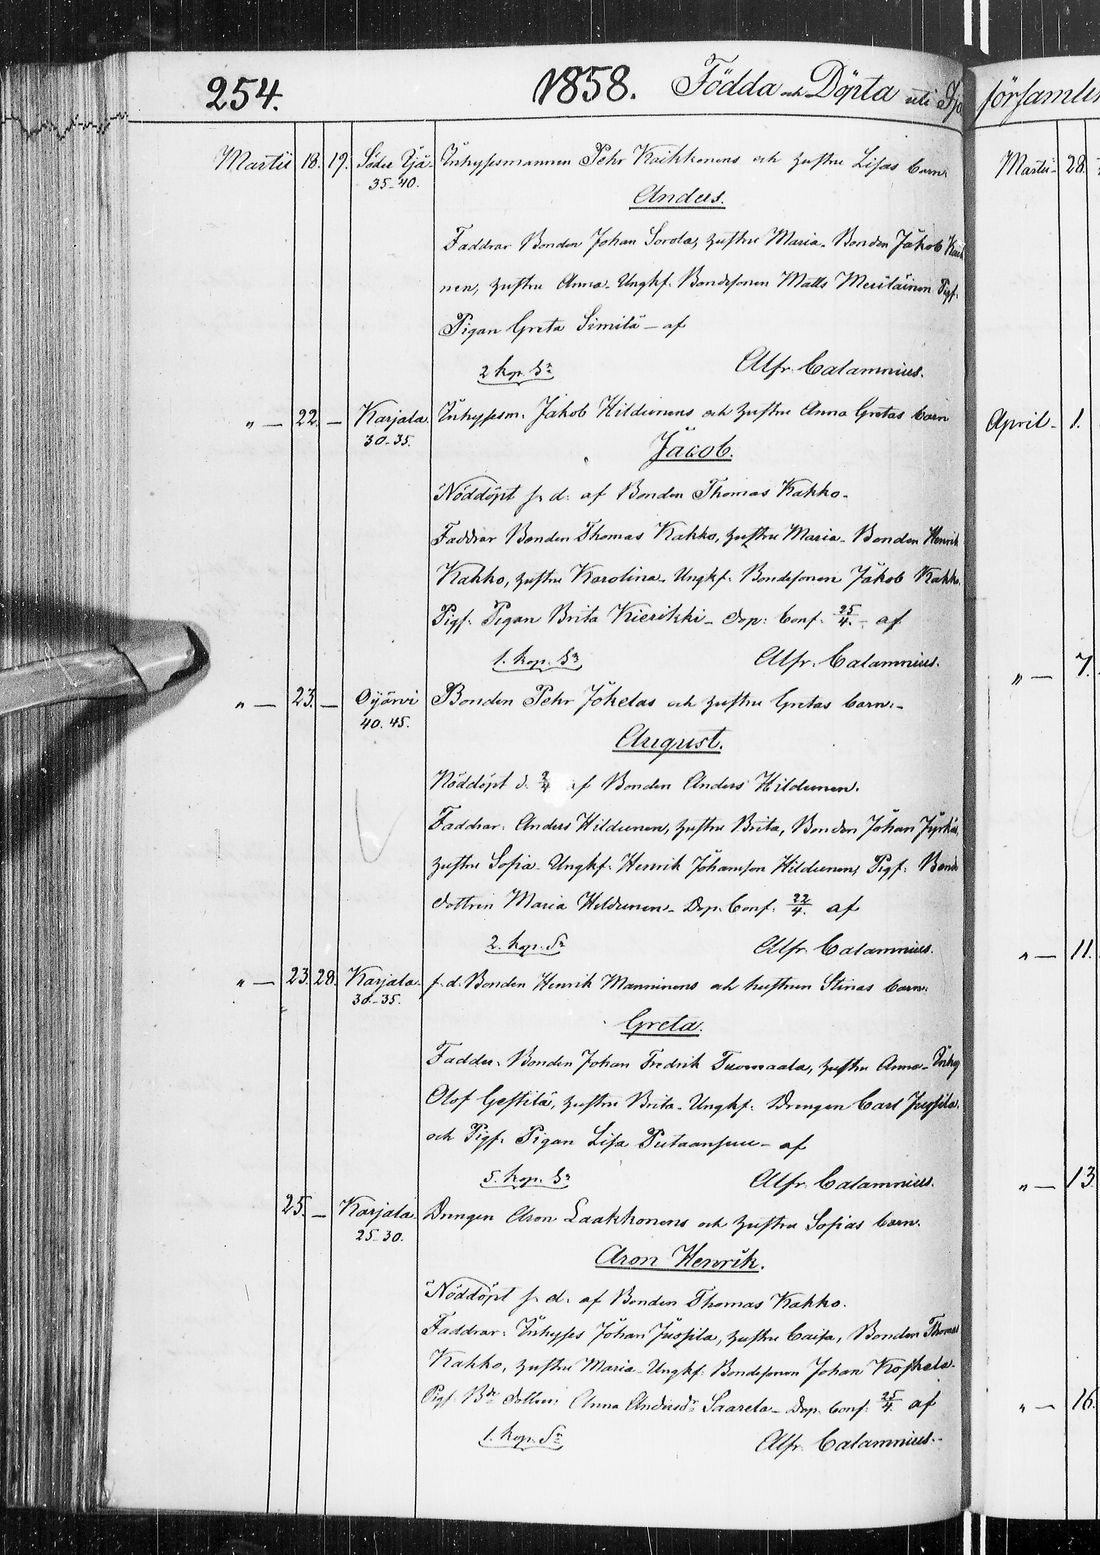 254. 1858. Födda och Döpta uti Ijo församlin
Martii 18. 19. Söder Ijä Inhysesmannen Pehr Kaihkonens och hustru Lisas barn.
35-40.
Anders.
Faddrar Bonden Johan Sorola, hustru Maria. Bonden Jakob
nen, hustru Anna. Ungkf. Bondesonen Matts Meriläinen Pigf.
Pigan Greta Similä – af
2 kop. Sr Alfr. Calamnius.
" — 22. — Karjala Inhysesm. Jakob Hildunens och hustru Anna Gretas barn
30-35.
Jacob.
Nöddöpt s. d. af Bonden Thomas Kakko.
Faddrar Bonden Thomas Kakko, hustru Maria. Bonden Henrik
Kakko, hustru Karolina. Ungkf. Bondesonen Jakob Kakko.
Pigf. Pigan Brita Kierikki – Dop. Conf. 25/4. af
1. kop. Sr Alfr. Calamnius.
" — 23. — Oijärvi Bonden Pehr Jokelas och hustru Gretas barn.
40. 45.
August.
Nöddöpt d. 2/4 af Bonden Anders Hildunen.
Faddrar. Anders Hildunen, hustru Brita, Bonden Johan
hustru Sofia. Ungkf. Henrik Johansson Hildunen, Pigf. Bonde
dottren Maria Hildunen. Dop. Conf. 22/4. af
2. kop. Sr Alfr. Calamnius.
" — 23. 28. Karjala. f. d. Bonden Henrik Manninens och hustrun Stinas barn.
30-35.
Greta.
Fadder. Bonden Johan Fredrik Tuomaala, hustru Anna. Inhy
Olof Gestilä, hustru Brita. Ungkf. Drengen Carl Jussila.
och Pigf. Pigan Lisa Putaansuu – af
5. kop. Sr Alfr. Calamnius.
25. — Karjala. Drngen Aron Laakkonens och hustru Sofias barn.
25-30.
Aron Henrik.
Nöddöpt s. d. af Bonden Thomas Kakko.
Faddrar. Inhyses Johan Jussila, hustru Caisa, Bonden Thomas
Kakko, hustru Maria. Ungkf. Bondesonen Johan Koskela.
Pigf. Bde dottren Anna Andersdr Saarela – Dop. Conf. 25/4. af
1. kop. Sr Alfr. Calamnius.
Martii. 28.
April. 1.
" — 7.
" — 11.
" — 13.
" — 16.